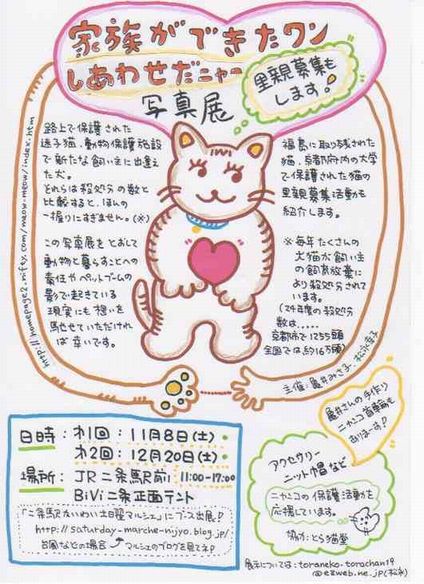 家族ができたワン
しあわせだニャン
写真展
里親募集も
します!
路上で保護された
迷子猫、動物保護施設
で新たな飼い主に出逢え
た犬。
それらは殺処分の数と
比較すると、ほんの
一握りにすぎません。(※)
この写真展をとおして
動物と暮らすことへの
責任やペットブームの
影で起きている
現実にも想いを
馳せていただけれ
ば幸いです。
福島に取り残された
猫、京都府内の大学
で保護された猫の
里親募集活動も
紹介します。
※毎年たくさんの
犬猫が飼い主
の飼育放棄に
より殺処分されて
います。
(24年度の殺処分
数は……
京都市で1255頭
全国では約16万頭)
http://homepage2.nifty.com/meow-meow/index.htm
主催:亀井みさ子、松永
亀井さんの手作り
ニャンコ
あります!
日時:第1回:11月8日(土)
第2回:12月20日(土)
場所:JR二条駅前 11:00-17:00
BiVi二条正面テント
「二条駅かいわい土曜マルシェ」にブース出展!
http://saturday-marche-nijyo.blog.jp/
台風などの場合→マルシェのブログを見てネ!
アクセサリー
ニット帽など
ニャンコの保護活動を
応援しています。
協力:とら猫堂
展示については:toraneko-torachan19
@ezweb.ne.jp(松永)